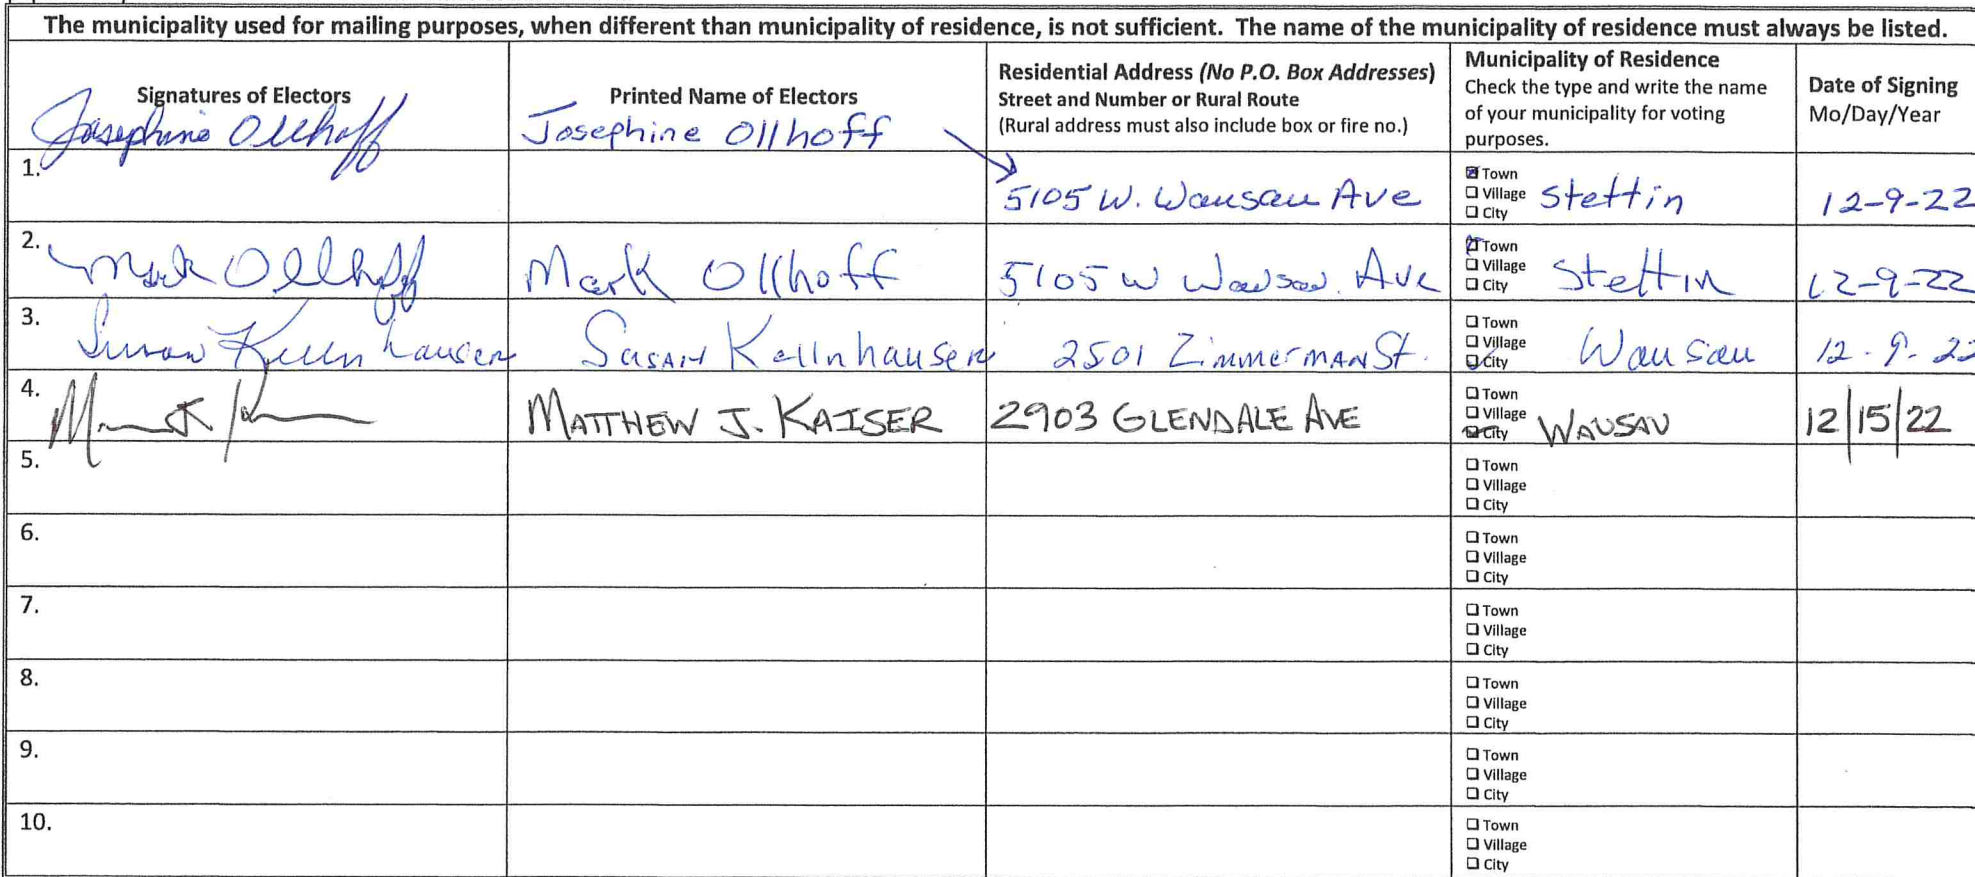 The municipality used for mailing purposes, when different than municipality of residence, is not sufficient. The name of the municipality of residence must always be listed.
Signatures of Electors
Printed Name of Electors
Residential Address (No P.O. Box Addresses)
Street and Number or Rural Route
(Rural address must also include box or fire no.)
Municipality of Residence
Check the type and write the name
of your municipality for voting
purposes.
Date of Signing
Mo/Day/Year
Josephine Ollhoff
Josephine Ollhoff
1.
5105 W. Wausau Ave
Town
Village
City
Stettin
12-9-22
2.
Mark Ollhoff
Mark Ollhoff
5105 W Wausau Ave
Town
Village
City
Stettin
12-9-22
3.
Susan Kellnhauser
Susan Kellnhauser
2501 Zimmerman St.
Town
Village
City
Wausau
12-9-22
4.
MATTHEW J. KAISER
2903 GLENDALE AVE
Town
Village
City
WAUSAU
12/15/22
5.
Town
Village
City
6.
Town
Village
City
7.
Town
Village
City
8.
Town
Village
City
9.
Town
Village
City
10.
Town
Village
City